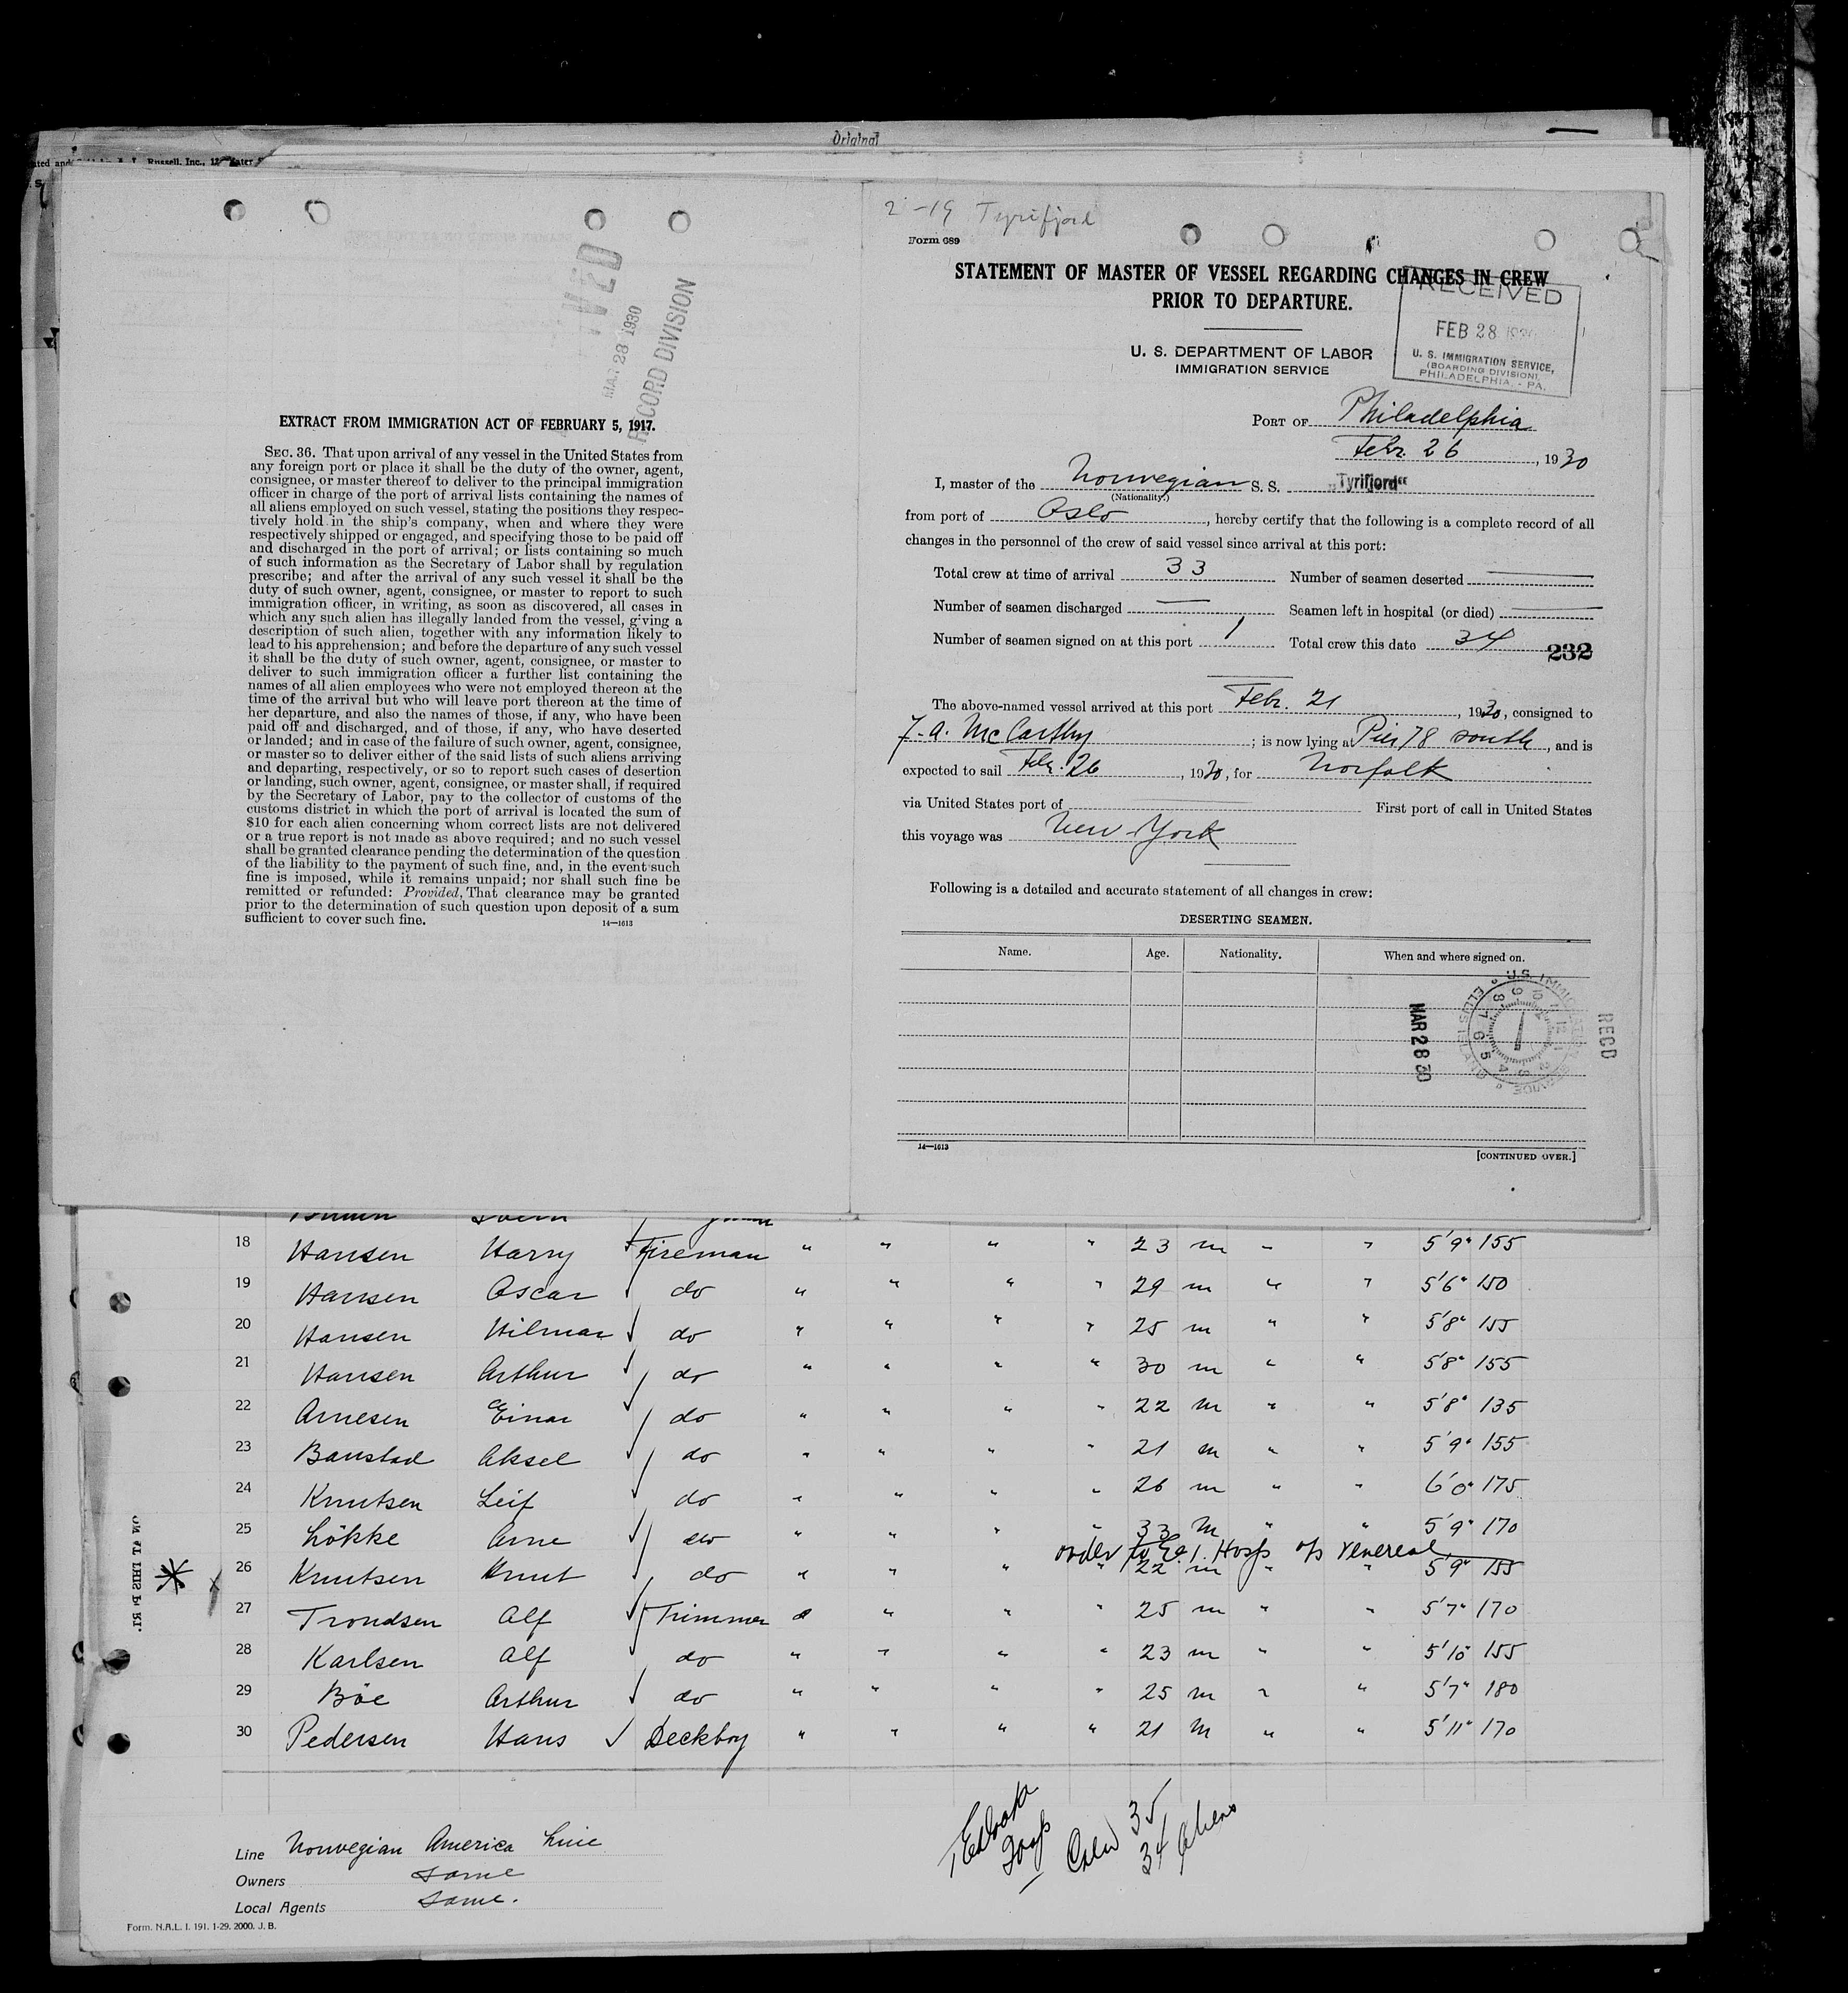 Original
2-19 Tyrifjord
Form 689
STATEMENT OF MASTER OF VESSEL REGARDING CHANGES IN CREW
PRIOR TO DEPARTURE.
RECEIVED
FEB 28 1930
U. S. IMMIGRATION SERVICE,
(BOARDING DIVISION),
PHILADELPHIA, - PA.
U. S. DEPARTMENT OF LABOR
IMMIGRATION SERVICE
PORT OF Philadelphia
Febr. 26, 1930
I, master of the Norwegian S. S. „Tyrifjord“
(Nationality.)
from port of Oslo, hereby certify that the following is a complete record of all
changes in the personnel of the crew of said vessel since arrival at this port:
Total crew at time of arrival 33 Number of seamen deserted —
Number of seamen discharged — Seamen left in hospital (or died) —
Number of seamen signed on at this port 1 Total crew this date 34
232
The above-named vessel arrived at this port Febr. 21, 1930, consigned to
F. A. McCarthy; is now lying at Pier 78 south, and is
expected to sail Febr. 26, 1930, for Norfolk
via United States port of — First port of call in United States
this voyage was New York
Following is a detailed and accurate statement of all changes in crew:
DESERTING SEAMEN.
Name. Age. Nationality. When and where signed on.
MAR 28 30
U.S. IMMIGRATION SERVICE ELLIS ISLAND
RECD
14—1613
[CONTINUED OVER.]
MAR 28 1930
RECORD DIVISION
EXTRACT FROM IMMIGRATION ACT OF FEBRUARY 5, 1917.
SEC. 36. That upon arrival of any vessel in the United States from
any foreign port or place it shall be the duty of the owner, agent,
consignee, or master thereof to deliver to the principal immigration
officer in charge of the port of arrival lists containing the names of
all aliens employed on such vessel, stating the positions they respec-
tively hold in the ship's company, when and where they were
respectively shipped or engaged, and specifying those to be paid off
and discharged in the port of arrival; or lists containing so much
of such information as the Secretary of Labor shall by regulation
prescribe; and after the arrival of any such vessel it shall be the
duty of such owner, agent, consignee, or master to report to such
immigration officer, in writing, as soon as discovered, all cases in
which any such alien has illegally landed from the vessel, giving a
description of such alien, together with any information likely to
lead to his apprehension; and before the departure of any such vessel
it shall be the duty of such owner, agent, consignee, or master to
deliver to such immigration officer a further list containing the
names of all alien employees who were not employed thereon at the
time of the arrival but who will leave port thereon at the time of
her departure, and also the names of those, if any, who have been
paid off and discharged, and of those, if any, who have deserted
or landed; and in case of the failure of such owner, agent, consignee,
or master so to deliver either of the said lists of such aliens arriving
and departing, respectively, or so to report such cases of desertion
or landing, such owner, agent, consignee, or master shall, if required
by the Secretary of Labor, pay to the collector of customs of the
customs district in which the port of arrival is located the sum of
$10 for each alien concerning whom correct lists are not delivered
or a true report is not made as above required; and no such vessel
shall be granted clearance pending the determination of the question
of the liability to the payment of such fine, and, in the event such
fine is imposed, while it remains unpaid; nor shall such fine be
remitted or refunded: Provided, That clearance may be granted
prior to the determination of such question upon deposit of a sum
sufficient to cover such fine.
14—1613
18 Hansen Harry Fireman " " " " 23 m " " 5'9" 155
19 Hansen Oscar do " " " " 29 m " " 5'6" 150
20 Hansen Hilmar do " " " " 25 m " " 5'8" 155
21 Hansen Arthur do " " " " 30 m " " 5'8" 155
22 Arnesen Einar do " " " " 22 m " " 5'8" 135
23 Banstad Aksel do " " " " 21 m " " 5'9" 155
24 Knutsen Leif do " " " " 26 m " " 6'0" 175
25 Lökke Arne do " " " " 33 m " " 5'9" 170
order to E. I. Hosp o/s venereal
26 Knutsen Knut do " " " " 22 m " " 5'9" 155
27 Trondsen Alf Trimmer " " " " 25 m " " 5'7" 170
28 Karlsen Alf do " " " " 23 m " " 5'10 155
29 Böe Arthur do " " " " 25 m " " 5'7" 180
30 Pedersen Hans Deckboy " " " " 21 m " " 5'11" 170
Crew 35
34 aliens
Line Norwegian America Line
Owners same
Local Agents same.
Form. N.A.L. I. 191. 1-29. 2000. J. B.